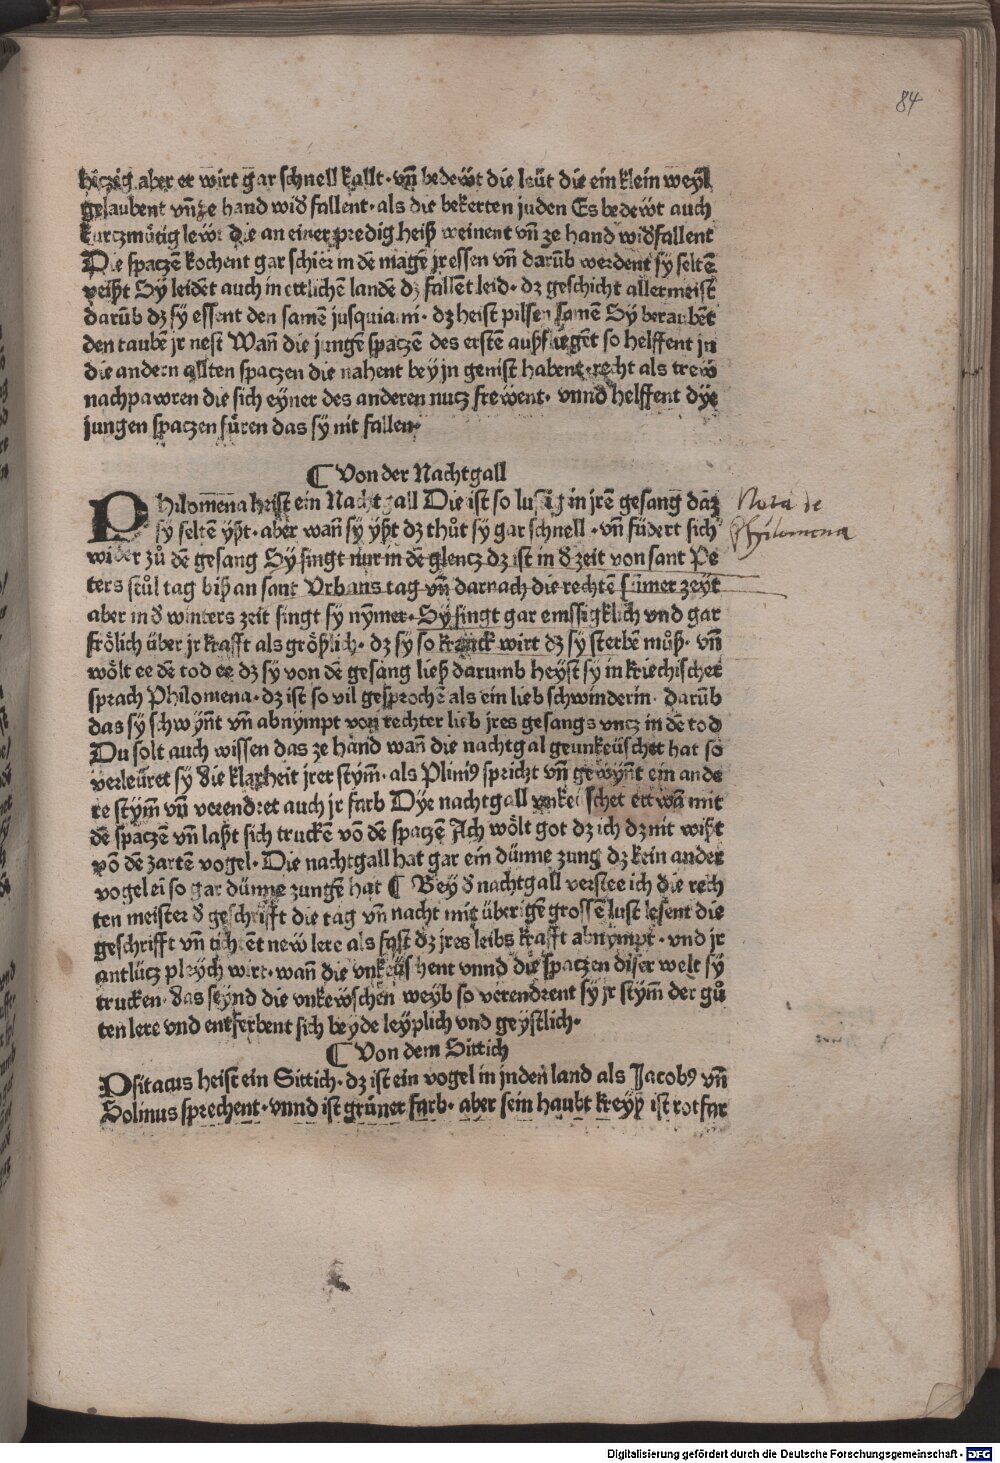 84
hiczig aber er wirt gar schnell kallt · vn̄ bedeẅt die leüt die ein klein weyl
gelaubent vn̄ ze hand wið fallent · als die bekerten juden Es bedeẅt auch
kurczmuͤtig leẅt die an einer predig heiß weinent vn̄ ze hand wiðfallent
Die spaczē kochent gar schier in dē magē jr essen vn̄ darūb werdent sy̎ seltē
veißt Sy̎ leidēt auch in ettlichē landē dz fallēt leid · dz geschicht allermeist
darūb dz sy̎ essent den samē jusquiami · dz heist pilsen samē Sy̎ beraubēt
den taubē jr nest Wan̄ die jungē spaczē des erstē außfliegēt so helffent jn
die andern allten spaczen die nahent bey jn genist habent · recht als treẅ
nachpawren die sich eyner des anderen nucz freẅent · vnnd helffent dye
jungen spaczen fuͤren das sy̎ nit fallen ·
¶ Von der Nachtgall
Philomen̄a heist ein Nachtgall Die ist so lustig in jrē gesang daz
sy̎ seltē yßt · aber wan̄ sy̎ yßt dz thuͦt sy̎ gar schnell · vn̄ füdert sich
wider zuͦ dē gesang Sy̎ singt nur in dē glencz dz ist in ð zeit von sant Pe
ters stuͦl tag biß an sant Vrbans tag vn̄ darnach die rechtē sūmer zeyt
aber in ð winters zeit singt sy̎ nym̄er · Sy̎ singt gar emssigklich vnd gar
froͤlich über jr krafft als groͤßlich · dz sy̎ so kranck wirt dz sy̎ sterbē muͦß · vn̄
woͤlt ee dē tod ee dz sy̎ von dē gesang ließ darumb heyst sy̎ in kriechischer
sprach Philomena · dz ist so vil gesprochē als ein lieb schwinderin · darūb
das sy̎ schwyn̄t vn̄ abnympt von rechter lieb jres gesangs vncz in dē tod
Du solt auch wissen das ze hand wan̄ die nachtgal geunkeüschet hat so
verleüret sy̎ die klarheit jrer stym̄ · als Pliniꝰ spricht vn̄ gewyn̄t ein ande
re stym̄ vn̄ verendret auch jr farb Dye nachtgall vnkeuschet ettwā mit
dē spaczē vn̄ laßt sich truckē vō dē spaczē Ach woͤlt got dz ich dz nit wißt
vō dē zartē vogel · Die nachtgall hat gar ein dünne zung dz kein ander
vogel ei so gar dünne zungē hat ¶ Bey ð nachtgall verstee ich die rech
ten meister ð geschrifft die tag vn̄ nacht mit überigē grossē lust lesent die
geschrifft vn̄ tichtēt neẅ lere als fast dz jres leibs krafft abnympt · vnd jr
antlücz pleych wirt · wan̄ die vnkeüschent vnnd die spaczen diser welt sy̎
trucken · das seynd die vnkeẅschen weyb so verendrent sy̎ jr stym̄ der guͦ
ten lere vnd entferbent sich beyde leyplich vnd geystlich ·
¶ Von dem Sittich
Psitacus heist ein Sittich · dz ist ein vogel in jnden land als Jacobꝰ vn̄
Solinus sprechent · vnnd ist gruͤner farb · aber sein haubt kreyß ist rotfar
Nota de
Philomena
Digitalisierung gefördert durch die Deutsche Forschungsgemeinschaft - DFG